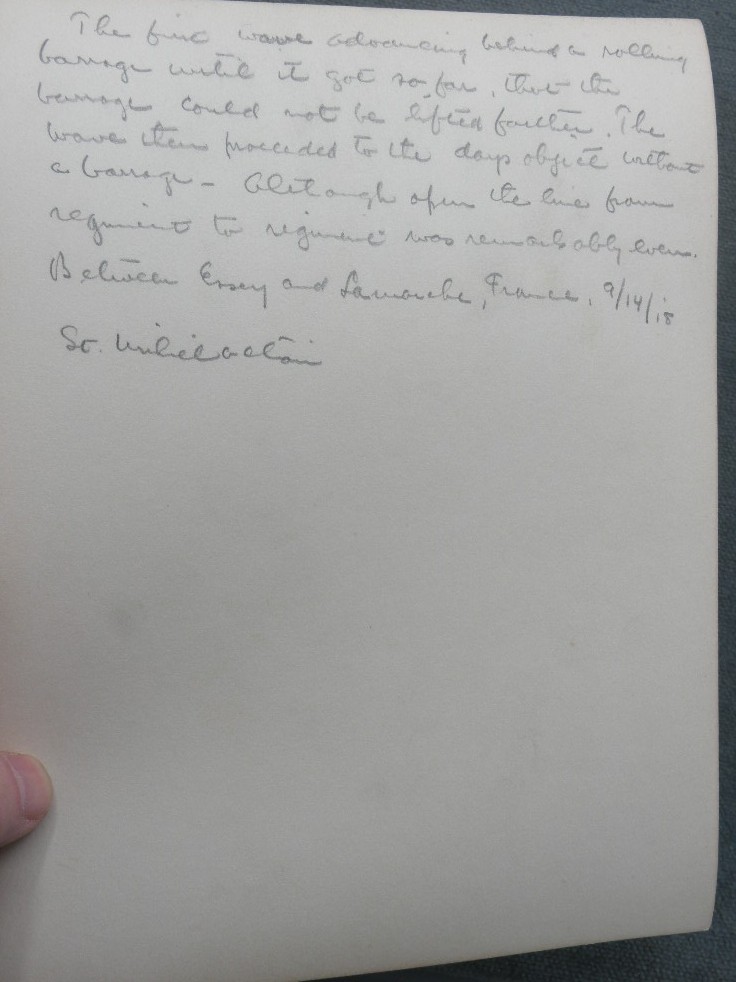 The first wave advancing behind a rolling
barrage until it got so far, that the
barrage could not be lifted farther. The
wave then proceeded to the days object without
a barrage - Although open the line from
regiment to regiment was remarkably even.
Between Essey and Lamarche, France, 9/14/18
St. Mihiel action